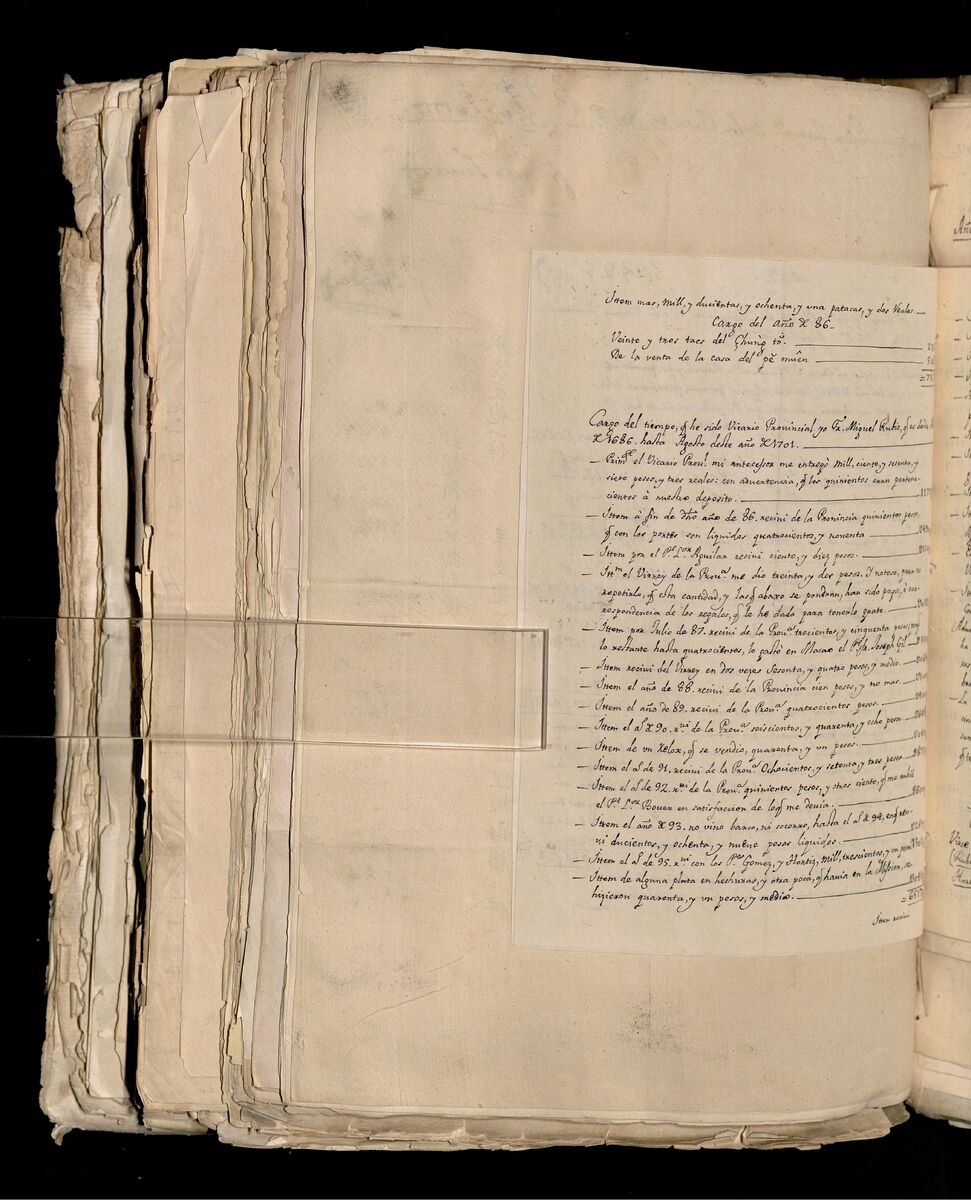 Ittem mas, mill, y ducientas, y ochenta, y vna patacas, y dos Reales.
Cargo del año de 86.
Veinte y tres taes del
De la venta de la casa del
Cargo del tiempo, q he sido Vicario Provincial yo Fr. Miguel Rubio, q es desde
de 1686. hasta Agosto deste año de 1701.
el Vicario Prou.l mi antecessor me entregò mill, ciento, y setenta, y
siete pesos, y tres reales: con aduertencia, q los quinientos eran pertene-
cientes à nuestro deposito.
Ittem à fin de dho año de 86. reciui de la Prouincia quinientos pesos,
q con los portes son liquidos quatrocientos, y nouenta
Ittem por el Pe. Lor. Aguilar reciui ciento, y diez pesos.
Ittm el Virrey de la Prou.a me dio treinta, y dos pesos. Y notese, para no
repetirlo, q esta cantidad, y las q abaxo se pondran, han sido paga, ò cor-
respondencia de los regalos, q le he dado para tenerle grato.
Ittem por Julio de 87. reciui de la Prou.a trecientos, y cinquenta pesos,
lo restante hasta quatrocientos, lo gastò en Macao el Pe. Fr. Joseph Gil.
Ittem reciui del Virrey en dos vezes sesenta, y quatro pesos, y medio.
Ittem el año de 88. reciui de la Prouincia cien pesos, y no mas.
Ittem el año de 89. reciui de la Prou.a quatrocientos pesos.
Ittem el aº de 90. rui de la Prou.a seiscientos, y quarenta, y ocho pesos.
Ittem de vn Relox, q se vendio, quarenta, y vn pesos.
Ittem el aº de 91. reciui de la Prou.a Ochocientos, y setenta, y tres pesos
Ittem el aº de 92. rui de la Prou.a quinientos pesos, y otros ciento, q me embiò
el Pe. Lor. Bouer en satisfaccion de lo q me deuia.
Ittem el año de 93. no vino barco, ni socorro, hasta el aº de 94, en q reci-
ui ducientos, y ochenta, y nueue pesos liquidos.
Ittem el aº de 95. rui con los Pes. Gomez, y Hortiz, mill, trescientos, y vn pesos
Ittem de alguna plata en hechuras, y otra poca, q hauia en la Mission, se
hizieron quarenta, y vn pesos, y medio.
Ittem reciui